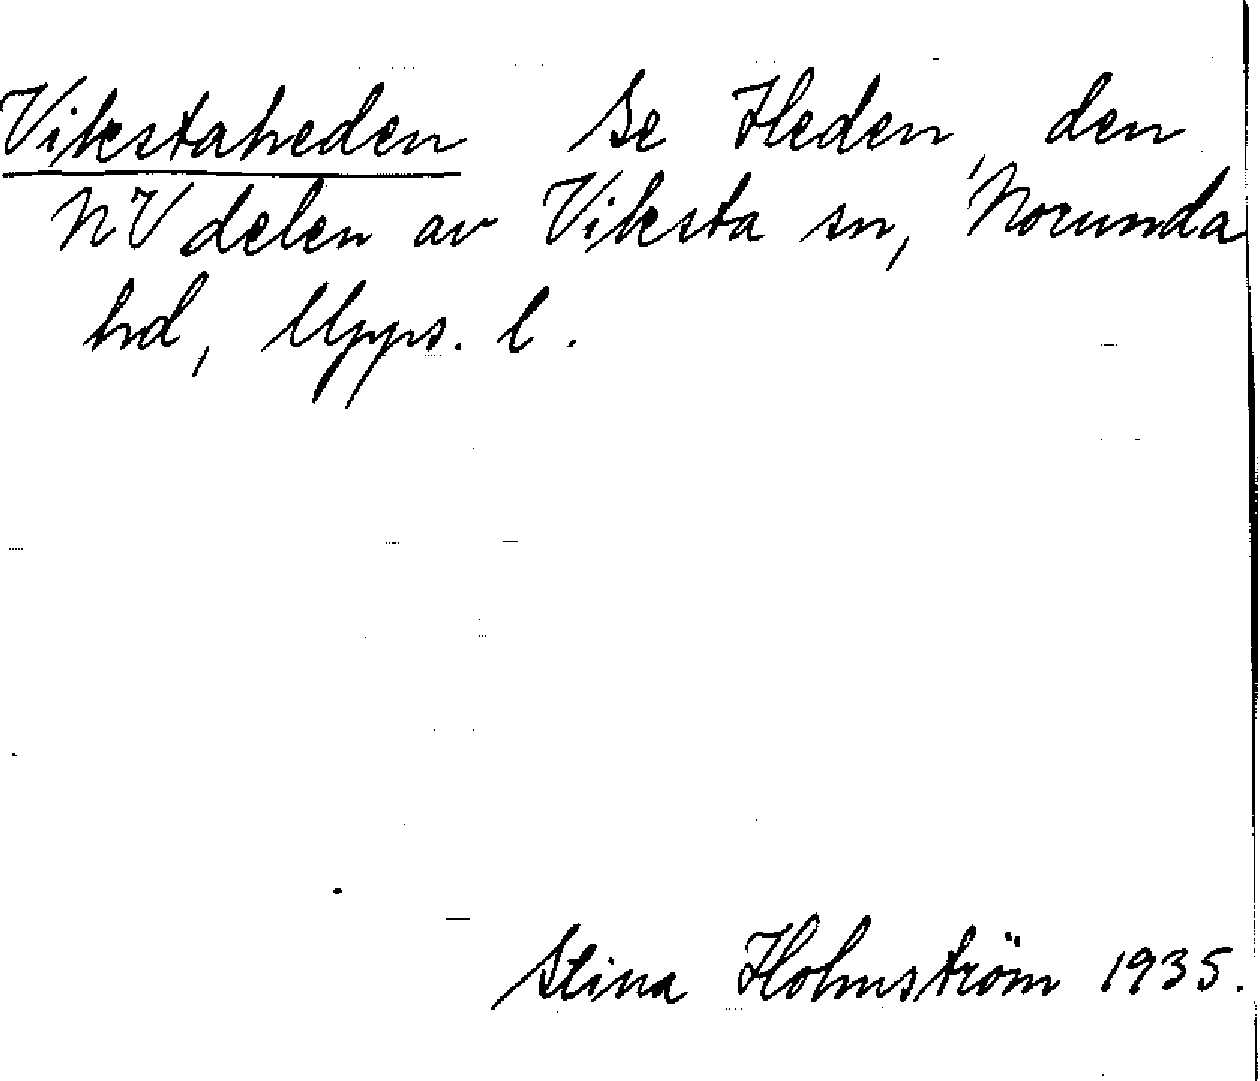 Vikstaheden Se Heden, den
NV delen av Viksta sn, Norunda
hd, Upps. l.
Stina Holmström 1935.